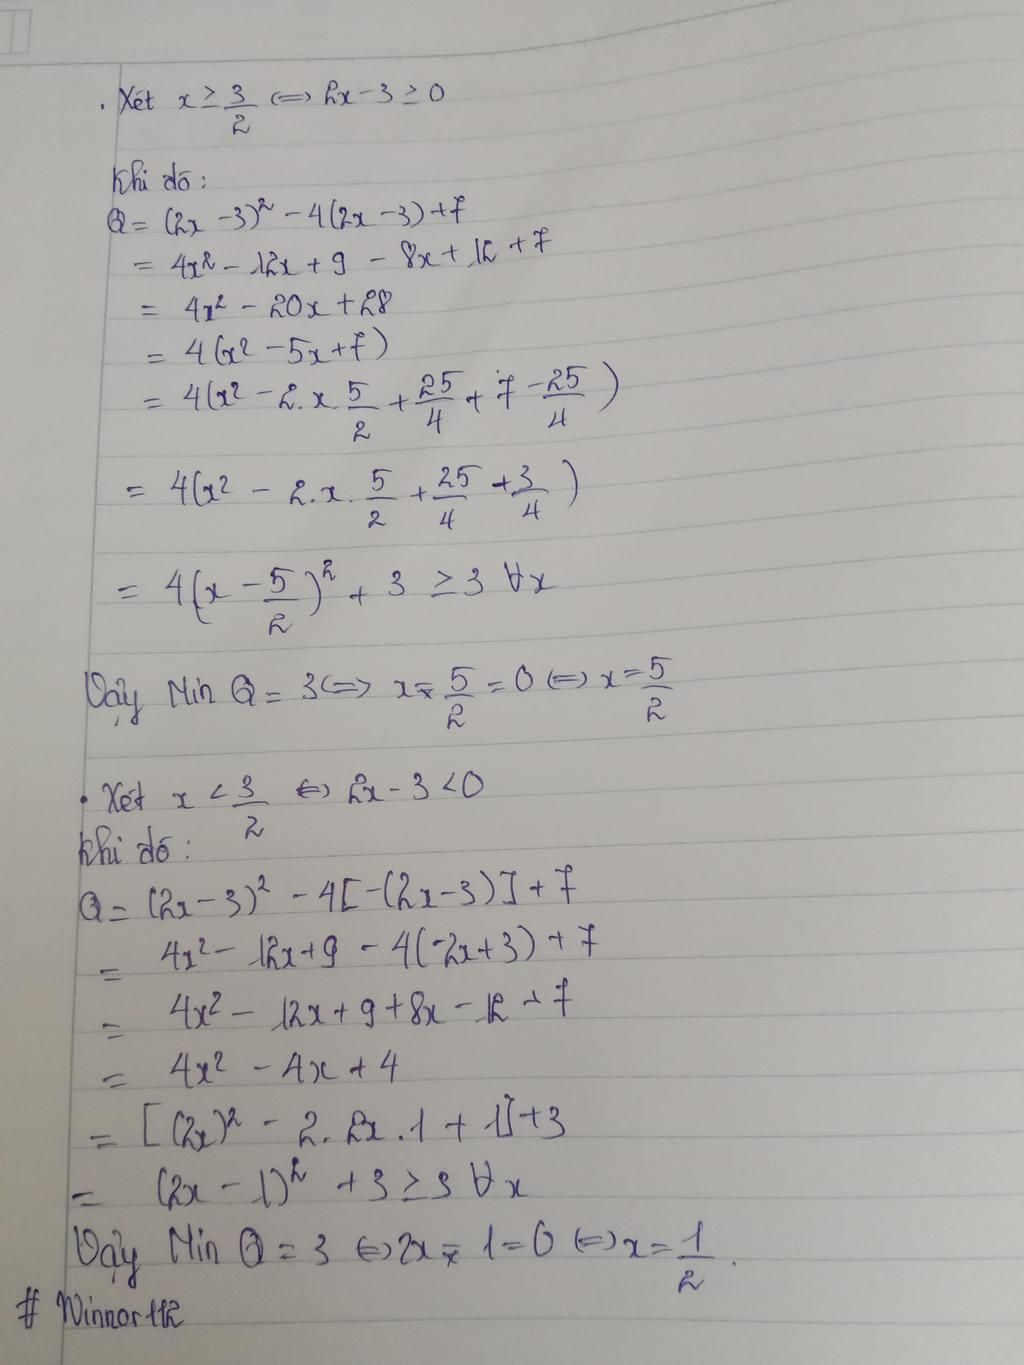 . Xét x ≥ 3/2 <=> 2x - 3 ≥ 0
Khi đó :
Q = (2x - 3)² - 4(2x - 3) + 7
= 4x² - 12x + 9 - 8x + 12 + 7
= 4x² - 20x + 28
= 4(x² - 5x + 7)
= 4(x² - 2.x.5/2 + 25/4 + 7 - 25/4)
= 4(x² - 2.x.5/2 + 25/4 + 3/4)
= 4(x - 5/2)² + 3 ≥ 3 ∀x
Vậy Min Q = 3 <=> x - 5/2 = 0 <=> x = 5/2
• Xét x < 3/2 <=> 2x - 3 < 0
Khi đó :
Q = (2x - 3)² - 4[-(2x - 3)] + 7
= 4x² - 12x + 9 - 4(-2x + 3) + 7
= 4x² - 12x + 9 + 8x - 12 + 7
= 4x² - 4x + 4
= [(2x)² - 2.2x.1 + 1] + 3
= (2x - 1)² + 3 ≥ 3 ∀x
Vậy Min Q = 3 <=> 2x - 1 = 0 <=> x = 1/2.